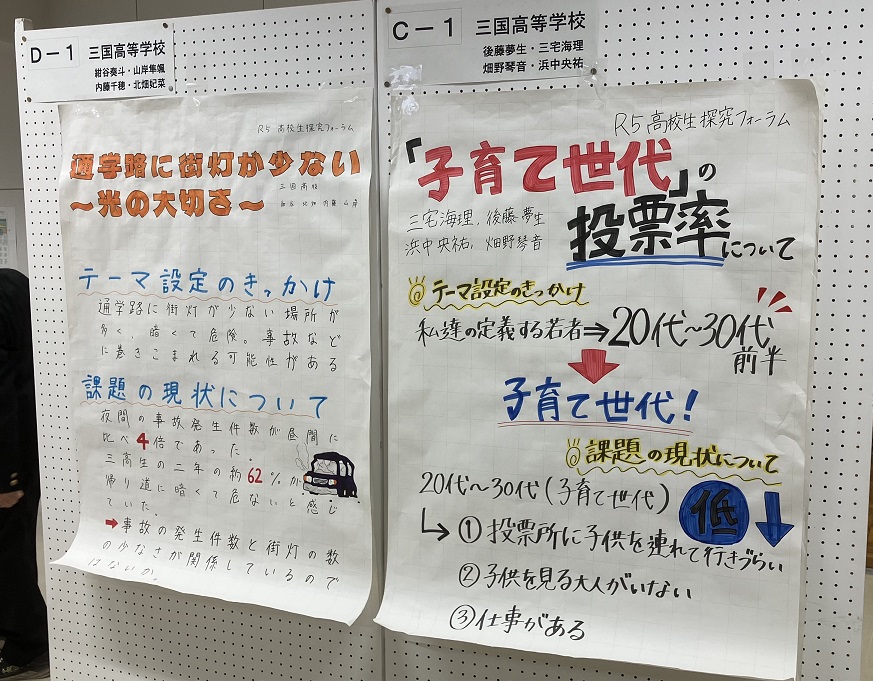 D－1 三国高等学校
紺谷奏斗・山岸隼颯
内藤千穂・北畑妃菜
R5 高校生探究フォーラム
通学路に街灯が少ない
～光の大切さ～
三国高校
テーマ設定のきっかけ
通学路に街灯が少ない場所が
多く、暗くて危険。事故など
に巻きこまれる可能性がある
課題の現状について
夜間の事故発生件数が昼間に
比べ4倍であった。
三高生の二年の約62%が
帰り道に暗くて危ないと感じ
ていた。
➡事故の発生件数と街灯の数
の少なさが関係しているので
はないか。
C－1 三国高等学校
後藤夢生・三宅海理
畑野琴音・浜中央祐
R5 高校生探究フォーラム
「子育て世代」の
投票率について
三宅海理、後藤夢生
浜中央祐、畑野琴音
テーマ設定のきっかけ
私達の定義する若者⇒20代～30代
前半
子育て世代！
課題の現状について
20代～30代(子育て世代) 低
①投票所に子供を連れて行きづらい
②子供を見る大人がいない
③仕事がある